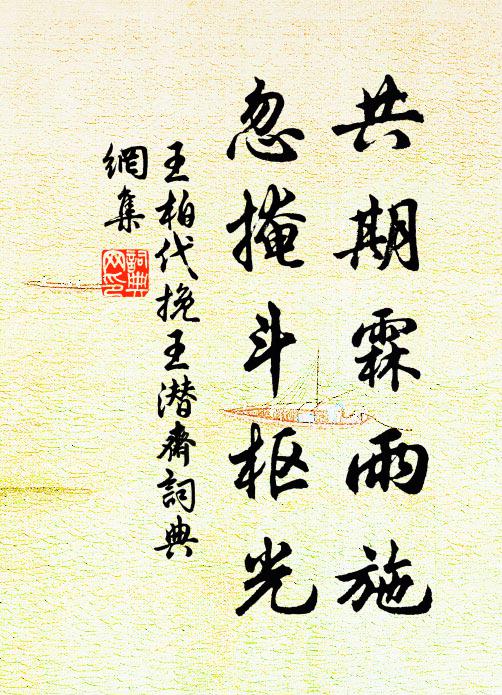 共期霖雨施
忽掩斗枢光
王柏代挽王潜斋詞典
網集
詞典
网印